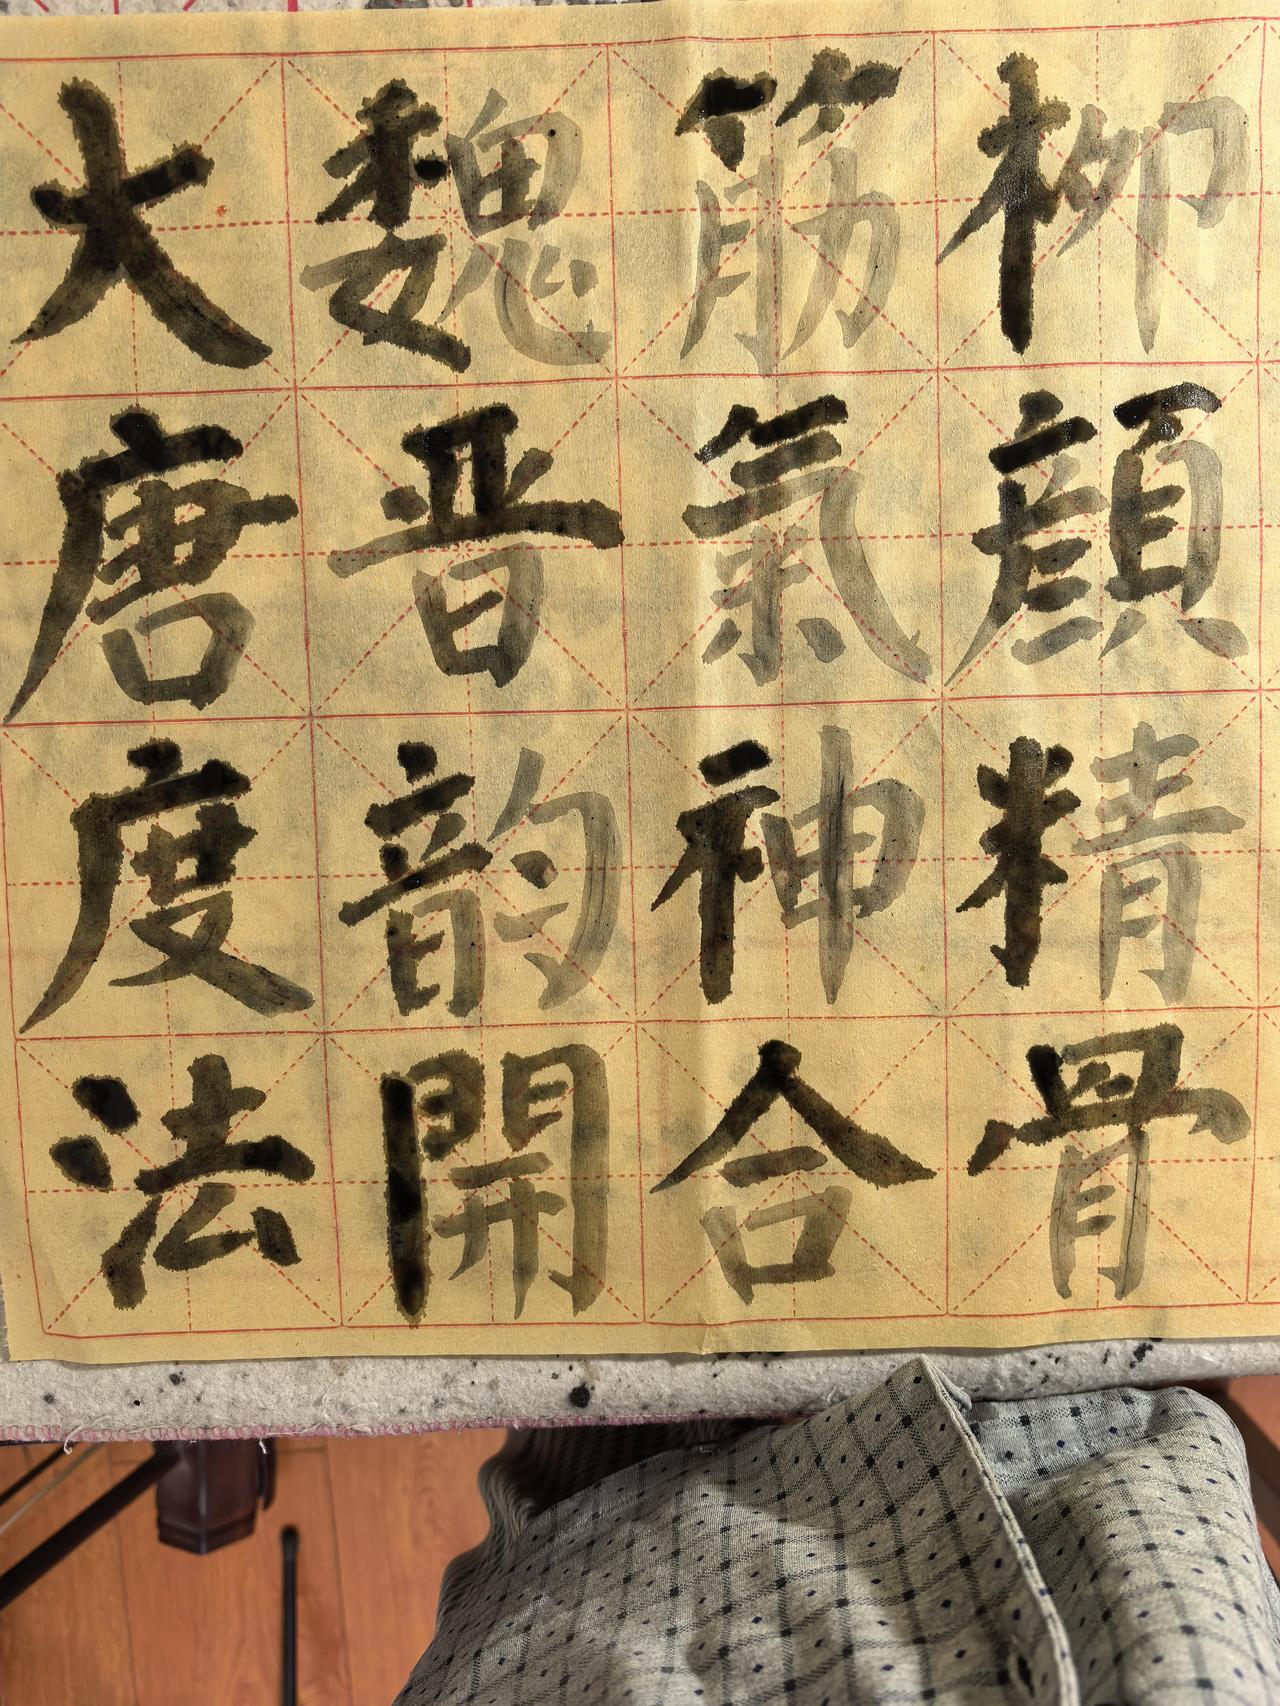 柳顔精骨
筋氣神合
魏晋韵開
大唐度法